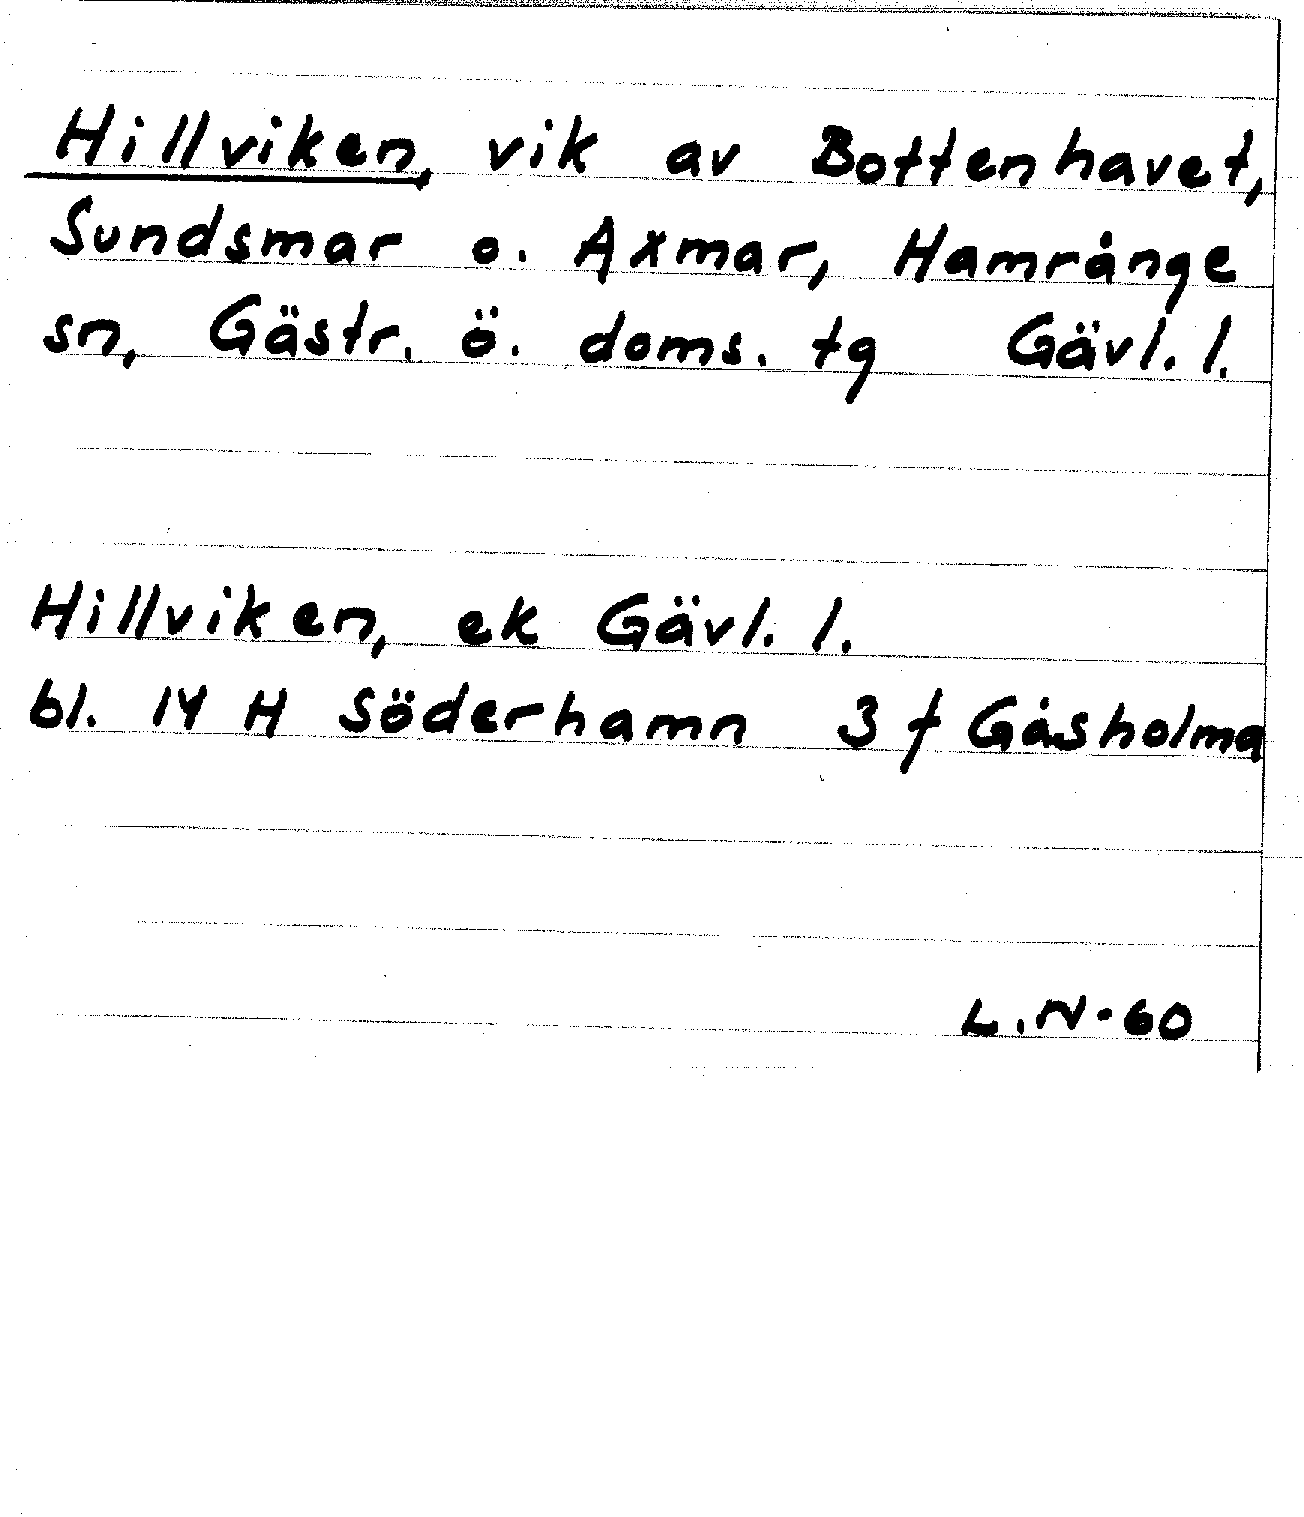 Hillviken, vik av Bottenhavet,
Sundsmar o. Axmar, Hamrånge
sn, Gästr. ö. doms. tg Gävl. l.
Hillviken, ek Gävl. l.
bl. 14 H Söderhamn 3 f Gåsholma
L.N-60